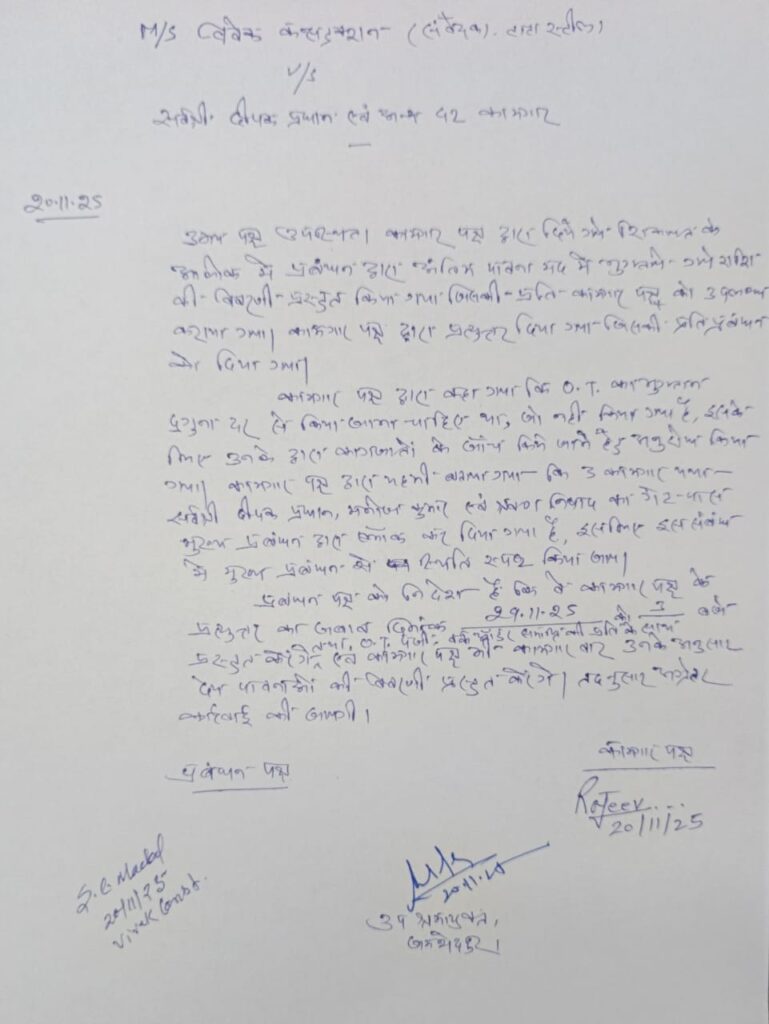 M/S विवेक कन्सट्रक्शन (संवेदक). टाटा स्टील।
V/S
सर्वश्री दीपक प्रधान एवं अन्य दस कामगार
20.11.25
उभय पक्ष उपस्थित। कामगार पक्ष द्वारा दिये गये शिकायत के
आलोक में प्रबंधन द्वारा अंतिम पावना मद में भुगतान गये राशि
की विवरणी प्रस्तुत किया गया जिसकी प्रति कामगार पक्ष को उपलब्ध
कराया गया। कामगार पक्ष द्वारा प्रत्युत्तर दिया गया जिसकी प्रति प्रबंधन
को दिया गया।
कामगार पक्ष द्वारा कहा गया कि O.T. का भुगतान
दुगुना दर से किया जाना चाहिए था, जो नहीं किया गया है, इसके
लिए उनके द्वारा कागजातों के जाँच किये जाने हेतु अनुरोध किया
गया। कामगार पक्ष द्वारा यह भी बताया गया कि 3 कामगार यथा-
सर्वश्री दीपक प्रधान, कुमार एवं निषाद का गेट-पास
मुख्य प्रबंधन द्वारा ब्लॉक कर दिया गया है, इसलिए इस संबंध
में मुख्य प्रबंधन से स्थिति स्पष्ट किया जाय।
प्रबंधन पक्ष को निदेश है कि वे कामगार पक्ष के
प्रत्युत्तर का जवाब दिनांक 29.11.25 को 3 बजे
तथा O.T. पंजी, की प्रति के साथ
प्रस्तुत करेंगे एवं कामगार पक्ष भी कामगार वार उनके अनुसार
देय पावनाओं की विवरणी प्रस्तुत करेंगे। तदनुसार अग्रेतर
कार्रवाई की जायगी।
प्रबंधन पक्ष
कामगार पक्ष
Rajeev....
20/11/25
20/11/25
Vivek Const.
20.11.25
उप श्रमायुक्त,
जमशेदपुर।